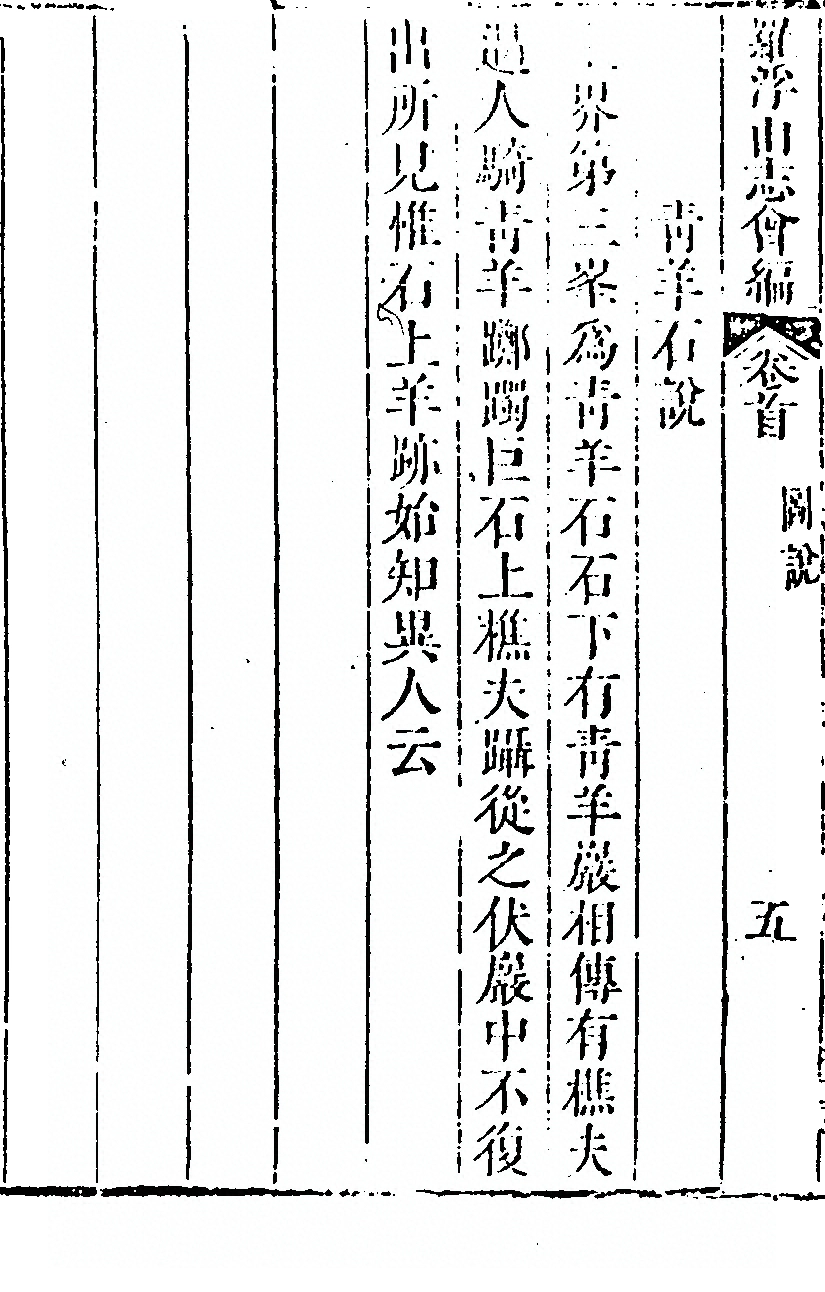 羅浮山志會編 卷首 圖說 五
青羊石說
上界第三峯爲青羊石石下有青羊巖相傳有樵夫
遇人騎青羊躑躅巨石上樵夫躡從之伏巖中不復
出所見惟石上羊跡始知異人云